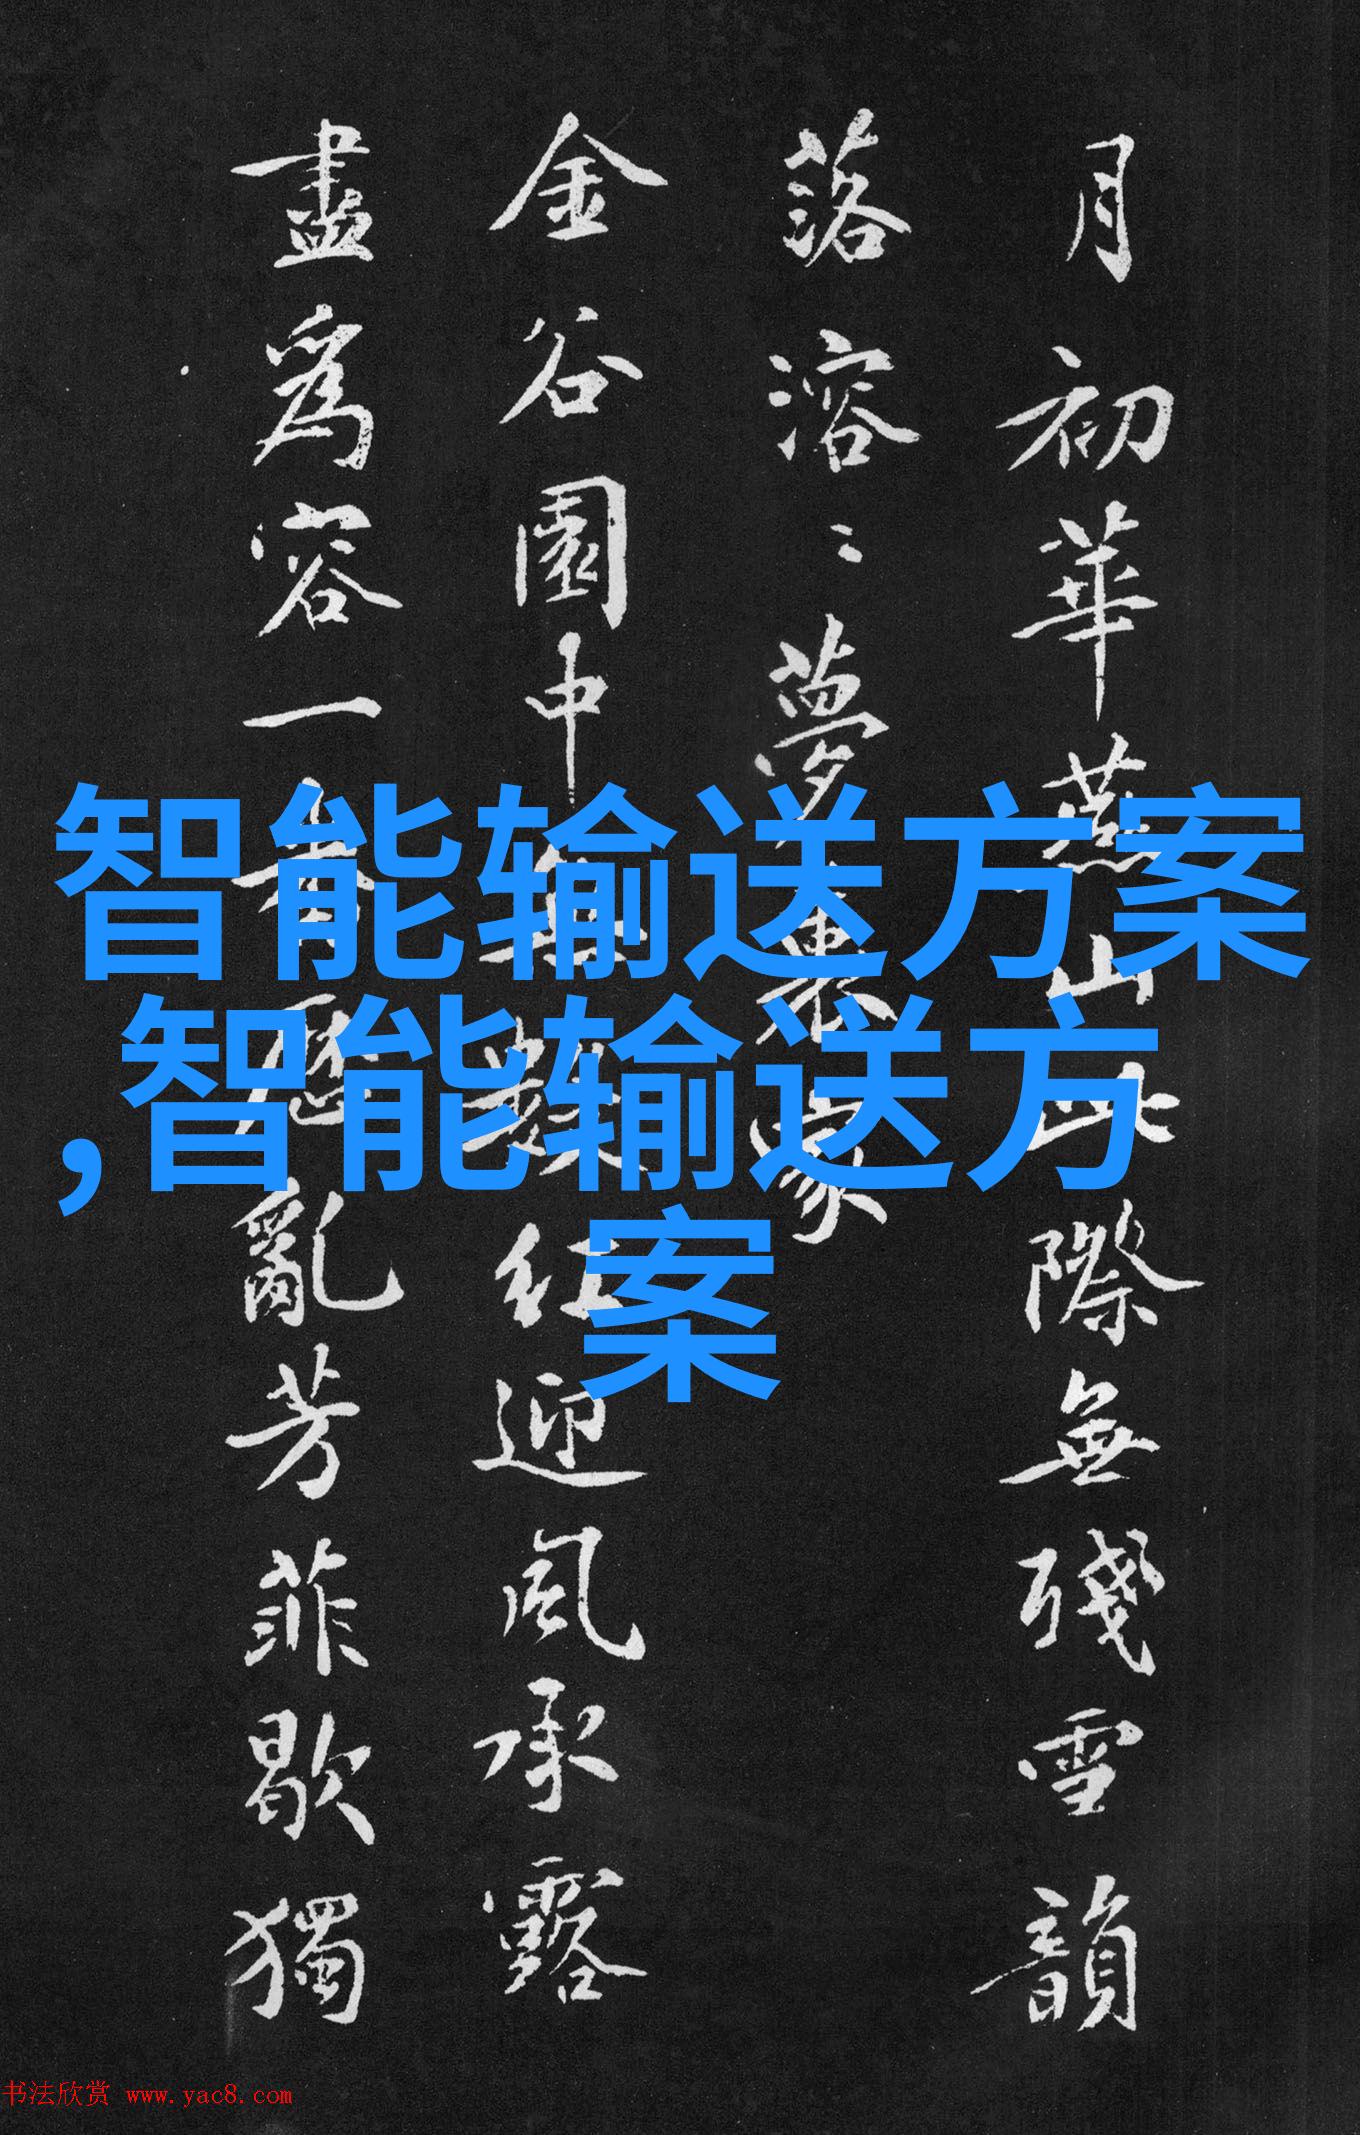 智能输送方案
,智能输送方
案
月初華燕山此際無殘雪韻
落溶〻夢裏家
金谷園中無數紅迎風承露
盡爲容一春歷亂芳菲歇獨
书法欣赏 www.yac8.com